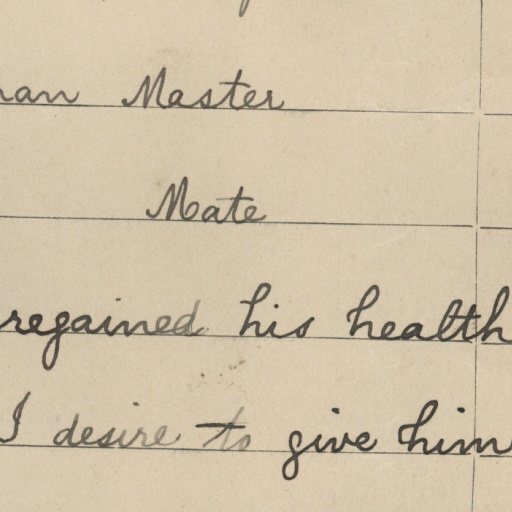 Master
Mate
regained his health
I desire to give him